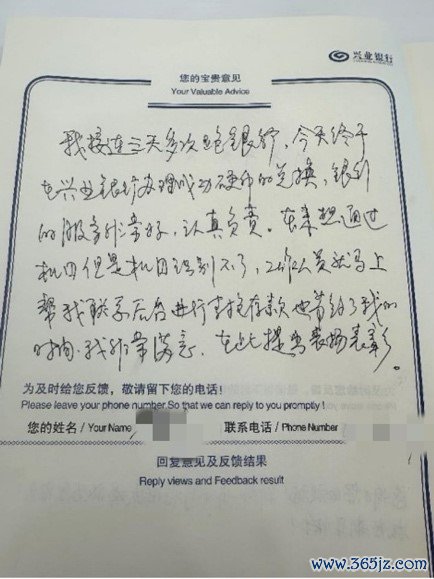 兴业银行
您的宝贵意见
Your Valuable Advice
我接连三天多次跑银行，今天终于
在兴业银行办理成功硬币的兑换，银行
的服务非常好，认真负责。本来想通过
机四但是机四识别不了，工作人员就马上
帮我联系后台进行直接存款也节约了我的
时间，我非常满意，在此提出表扬表彰。
为及时给您反馈，敬请留下您的电话！
Please leave your phone number.So that we can reply to you promptly !
您的姓名 / Your Name
联系电话 / Phone Number
回复意见及反馈结果
Reply views and Feedback result
www.365jz.com